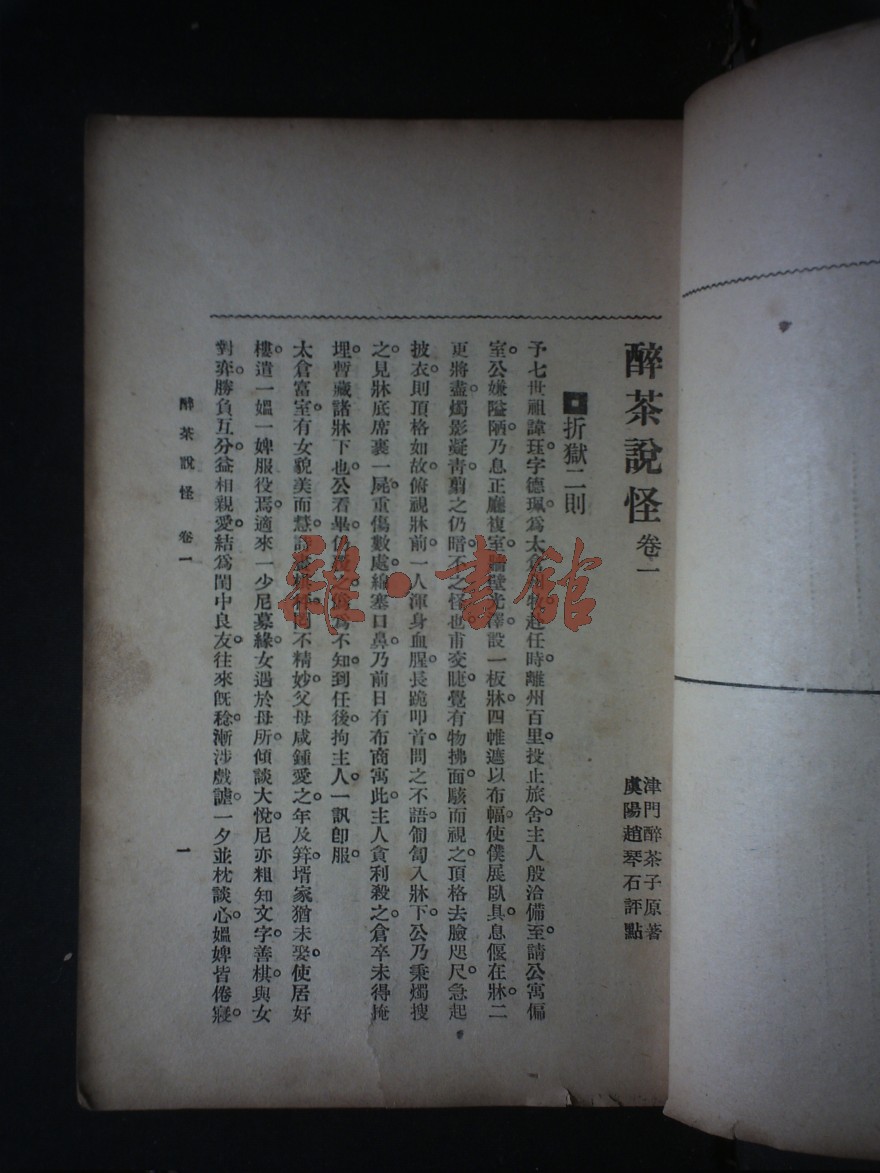 醉茶說怪 卷一
津門醉茶子原著
虞陽趙琴石評點
折獄二則
予七世祖諱玨字德珮。爲太倉州牧。赴任時。離州百里。投止旅舍。主人殷洽備至。請公寓偏
室。公嫌隘陋。乃息正廳複室。牆壁光澤。設一板牀。四帷遮以布幅。使僕展臥具。息偃在牀。二
更將盡。燭影凝青。翦之仍暗。不之怪也。甫交睫。覺有物拂面。駭而視之。頂格去臉咫尺。急起
披衣。則頂格如故。俯視牀前。一人渾身血腥。長跪叩首。問之不語。匍匐入牀下。公乃秉燭搜
之。見牀底席裹一屍。重傷數處。綿塞口鼻。乃前日有布商寓此。主人貪利殺之。倉卒未得掩
埋。暫藏諸牀下也。公看畢。仍覆之。僞爲不知。到任後。拘主人。一訊卽服。
太倉富室。有女貌美而慧。詩畫棋枰。罔不精妙。父母咸鍾愛之。年及笄。壻家猶未娶。使居好
樓。遣一媼一婢服役焉。適來一少尼募緣。女遇於母所。傾談大悅。尼亦粗知文字善棋。與女
對弈。勝負互分。益相親愛。結爲閨中良友。往來旣稔。漸涉戲謔。一夕並枕談心。媼婢皆倦寢。
醉茶說怪 卷一
一
龍·書館